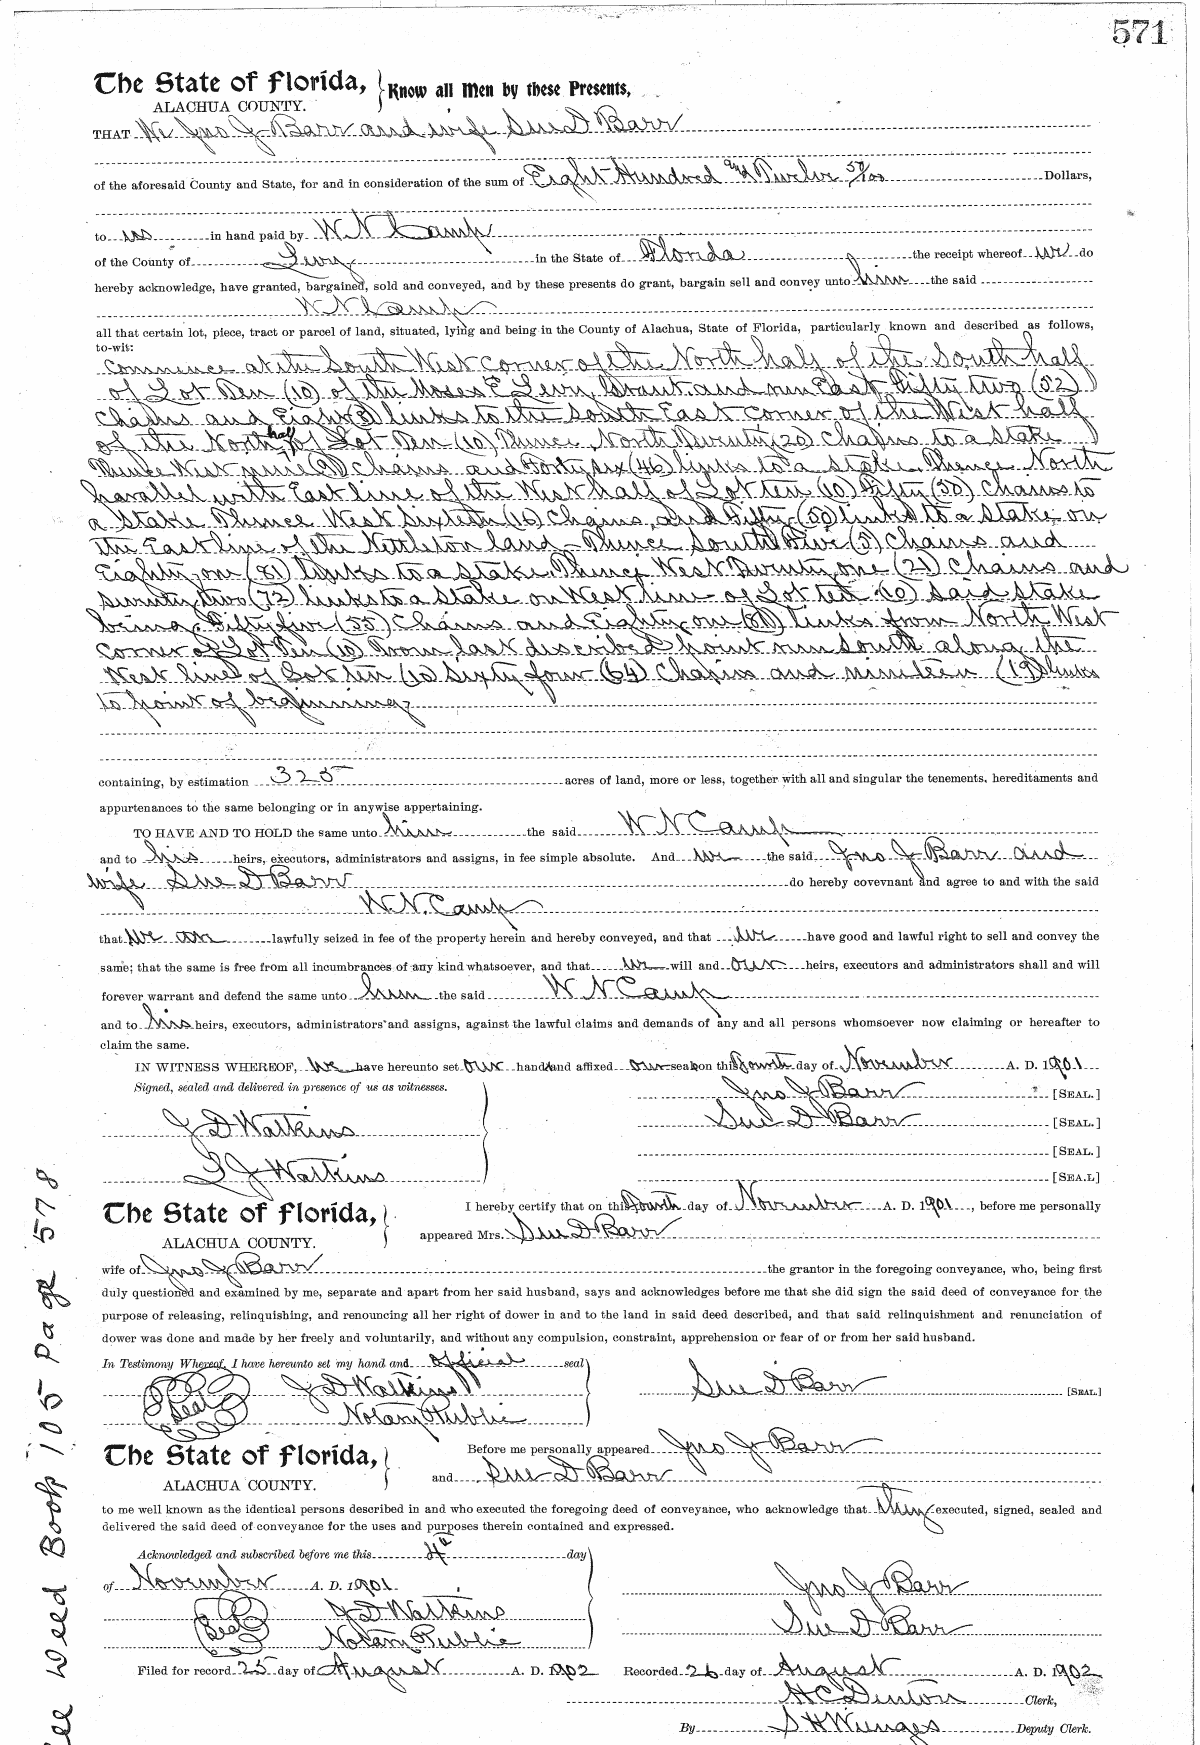 571
The State of Florida,
ALACHUA COUNTY.
Know all Men by these Presents,
THAT We Jno J Barr and wife Sue D Barr
of the aforesaid County and State, for and in consideration of the sum of Eight Hundred and Twelve 50/100 Dollars,
to us in hand paid by W N Camp
of the County of Levy in the State of Florida the receipt whereof we do
hereby acknowledge, have granted, bargained, sold and conveyed, and by these presents do grant, bargain sell and convey unto him the said
W N Camp
all that certain lot, piece, tract or parcel of land, situated, lying and being in the County of Alachua, State of Florida, particularly known and described as follows,
to-wit:
Commence at the South West corner of the North half of the South half
of Lot Ten (10) of the Moses E Levy Grant and run East Fifty two (52)
Chains and Eight (8) links to the South East corner of the West half
of the North half of Lot Ten (10) Thence North Twenty (20) Chains to a Stake
Thence West nine (9) Chains and Forty six (46) links to a Stake. Thence North
parallel with East line of the West half of Lot ten (10) Fifty (50) Chains to
a Stake Thence West Sixteen (16) Chains, and Fifty (50) links to a Stake on
the East line of the Nettleton land - Thence South Five (5) Chains and
Eighty one (81) links to a Stake. Thence West Twenty one (21) Chains and
Seventy two (72) links to a Stake on West line of Lot ten (10) said Stake
being Fifty five (55) Chains and Eighty one (81) links from North West
corner of Lot Ten (10) From last described point run South along the
West line of Lot ten (10) Sixty four (64) Chains and nineteen (19) links
to point of beginning
containing, by estimation 325 acres of land, more or less, together with all and singular the tenements, hereditaments and
appurtenances to the same belonging or in anywise appertaining.
TO HAVE AND TO HOLD the same unto him the said W N Camp
and to his heirs, executors, administrators and assigns, in fee simple absolute. And we the said Jno J Barr and
wife Sue D Barr do hereby covevnant and agree to and with the said
W. N. Camp
that we are lawfully seized in fee of the property herein and hereby conveyed, and that we have good and lawful right to sell and convey the
same; that the same is free from all incumbrances of any kind whatsoever, and that we will and our heirs, executors and administrators shall and will
forever warrant and defend the same unto him the said W N Camp
and to his heirs, executors, administrators and assigns, against the lawful claims and demands of any and all persons whomsoever now claiming or hereafter to
claim the same.
IN WITNESS WHEREOF, we have hereunto set our hands and affixed our seals on this fourth day of November A. D. 1901
Signed, sealed and delivered in presence of us as witnesses.
Jno J Barr [SEAL.]
Sue D Barr [SEAL.]
J D Watkins
[SEAL.]
L J Watkins
[SEAL.]
The State of Florida,
ALACHUA COUNTY.
I hereby certify that on this fourth day of November A. D. 1901, before me personally
appeared Mrs. Sue D Barr
wife of Jno J Barr the grantor in the foregoing conveyance, who, being first
duly questioned and examined by me, separate and apart from her said husband, says and acknowledges before me that she did sign the said deed of conveyance for the
purpose of releasing, relinquishing, and renouncing all her right of dower in and to the land in said deed described, and that said relinquishment and renunciation of
dower was done and made by her freely and voluntarily, and without any compulsion, constraint, apprehension or fear of or from her said husband.
In Testimony Whereof, I have hereunto set my hand and official seal
Seal J D Watkins
Notary Public
Sue D Barr [SEAL]
The State of Florida,
ALACHUA COUNTY.
Before me personally appeared Jno J Barr
and Sue D Barr
to me well known as the identical persons described in and who executed the foregoing deed of conveyance, who acknowledge that they executed, signed, sealed and
delivered the said deed of conveyance for the uses and purposes therein contained and expressed.
Acknowledged and subscribed before me this 4th day
of November A. D. 1901.
Seal J D Watkins
Notary Public
Jno J Barr
Sue D Barr
Filed for record 25 day of August A. D. 1902
Recorded 26 day of August A. D. 1902
H C Denton Clerk,
By S H Wienges Deputy Clerk.
See Deed Book 105 Page 578